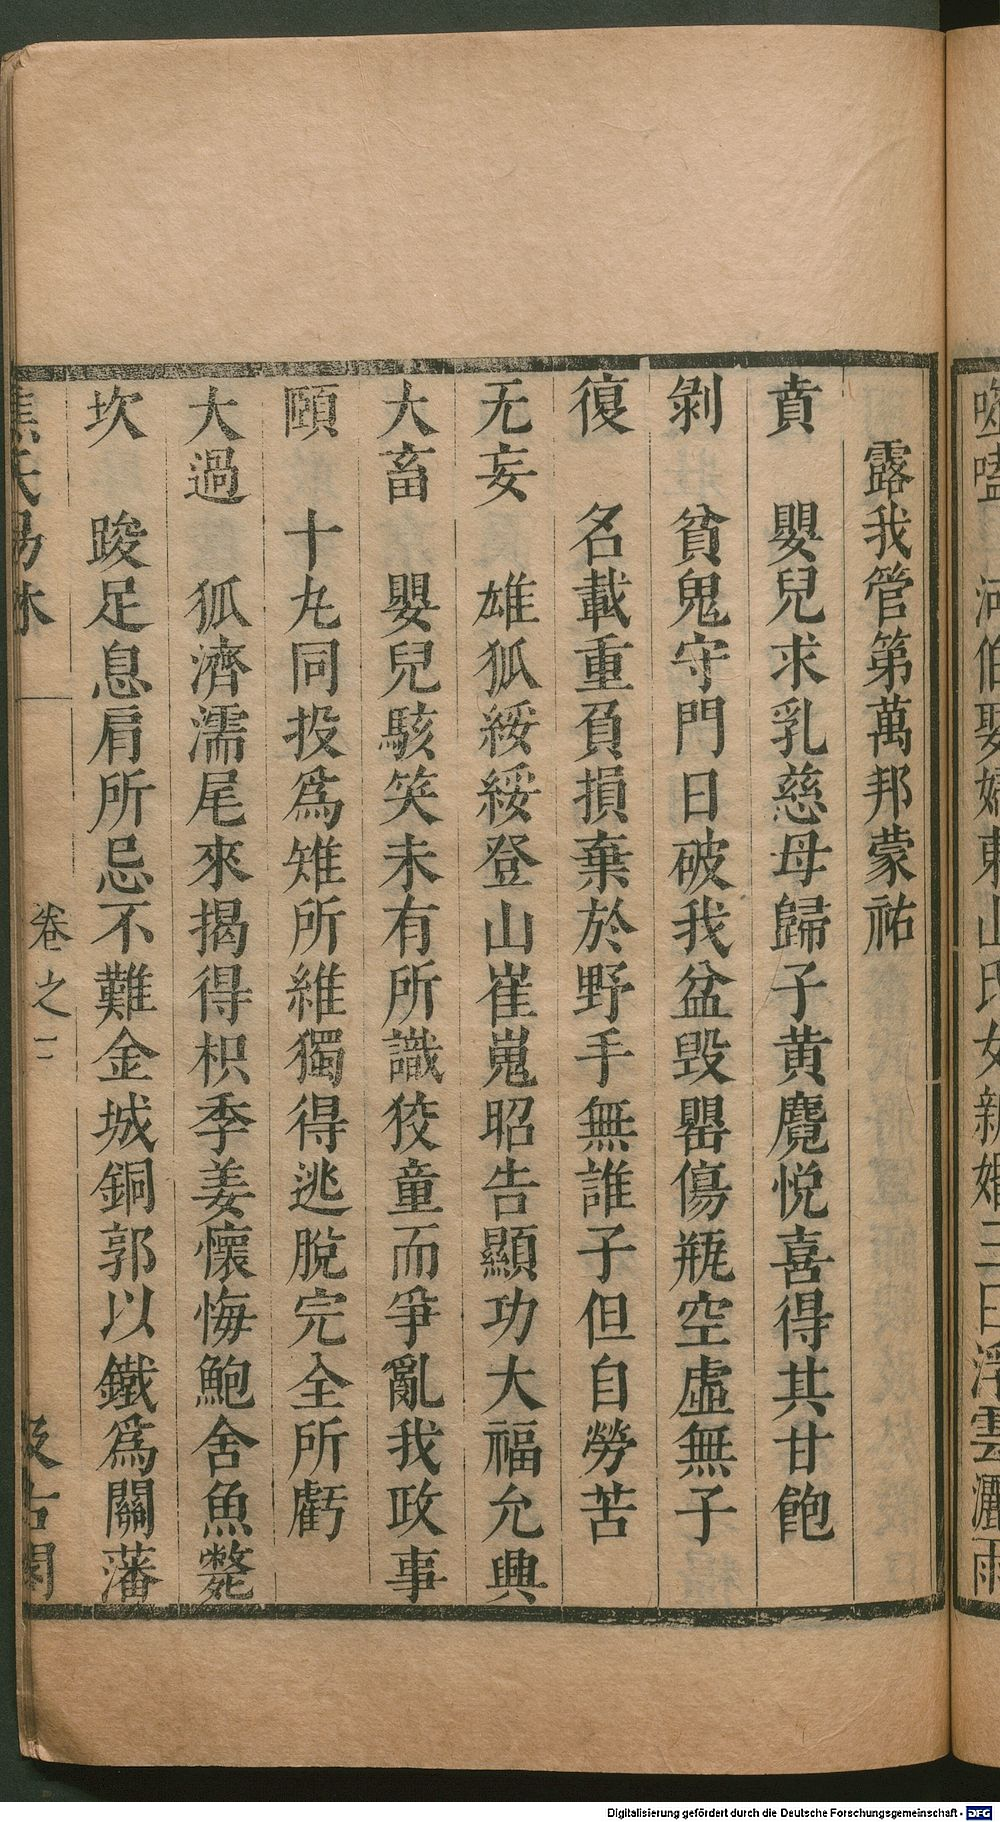 噬嗑 河伯娶婦東山氏女新婚三日浮雲灑雨
露我管第萬邦蒙祐
賁 嬰兒求乳慈母歸子黃麑悅喜得其甘飽
剝 貧鬼守門日破我盆毀罌傷瓶空虛無子
復 名載重負損棄於野手無誰子但自勞苦
无妄 雄狐綏綏登山崔嵬昭告顯功大福允興
大畜 嬰兒駭笑未有所識狡童而爭亂我政事
頤 十九同投為雉所維獨得逃脫完全所虧
大過 狐濟濡尾來揭得枳季姜懷悔鮑舍魚斃
坎 踆足息肩所忌不難金城銅郭以鐵為關藩
焦氏易林 卷之二 汲古閣
Digitalisierung gefördert durch die Deutsche Forschungsgemeinschaft - DFG